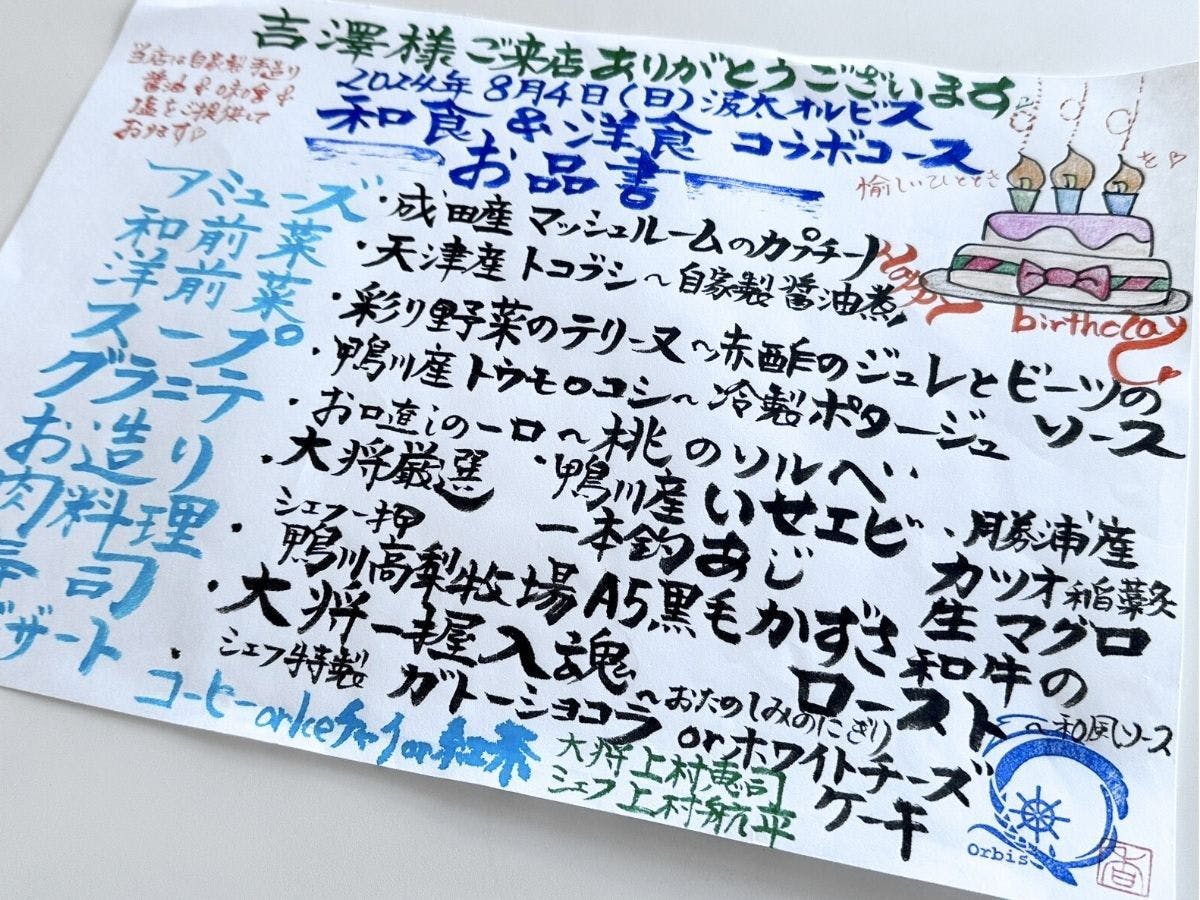 吉澤様ご来店ありがとうございます
当店は自家製手造り
醤油&味噌&
塩をご提供して
おります♡
2024年8月4日(日)波太オルビス
和食&洋食 コラボコース
お品書
愉しいひとときを♡
Happy
birthday
アミューズ ・成田産 マッシュルームのカプチーノ
和前菜 ・天津産 トコブシ~自家製醤油煮
洋前菜 ・彩り野菜のテリーヌ~赤酢のジュレとビーツのソース
スープ ・鴨川産トウモロコシ~冷製ポタージュ
グラニテ ・お口直しの一口~桃のソルベ
お造り ・大将厳選 ・鴨川産いせエビ ・勝浦産
一本釣あじ カツオ稲藁炙
生マグロ
肉料理 ・シェフ一押
鴨川高梨牧場A5黒毛かずさ和牛の
ロースト~和風ソース
寿司 ・大将一握入魂~おたのしみのにぎり
デザート ・シェフ特製 ガトーショコラorホワイトチーズ
ケーキ
コーヒーorIceチャイor紅茶
大将上村恵司
シェフ上村航平
Orbis